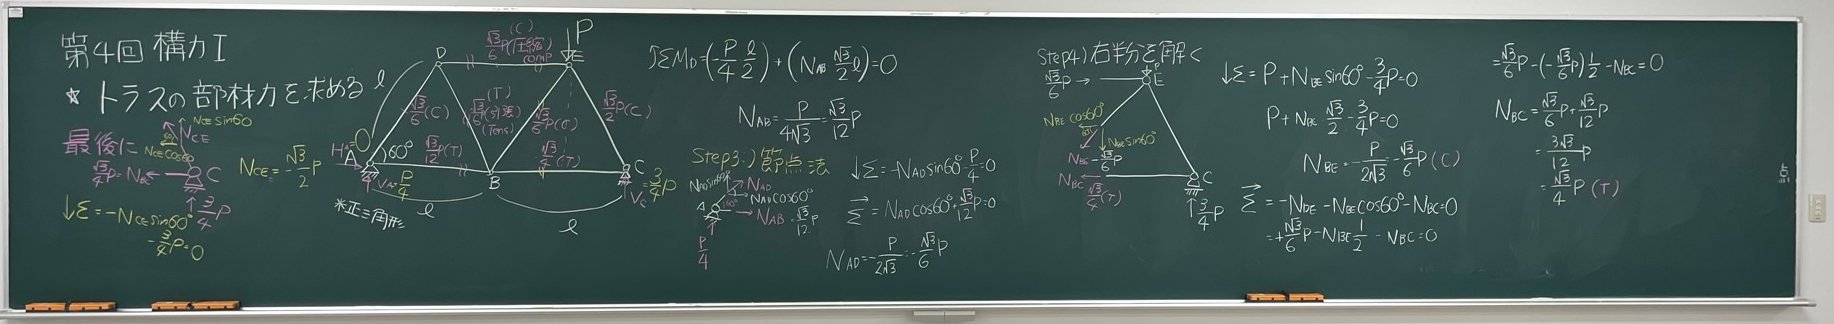 第4回 構力I
★ トラスの部材力を求める
最後に
NCE sin60
NCE
60°
NCE cos60
√3/4 P = NBC ← C
3/4 P
↓Σ = -NCE sin60° - 3/4 P = 0
NCE = -√3/2 P
l
D
√3/6 P(圧縮) (C) comp
P
E
√3/6 (C)
(T) √3/6 P(引張) (Tens)
√3/6 P(C)
√3/2 P(C)
HA=0
A
60°
√3/12 P(T)
√3/4 (T)
C
VA=P/4
B
VC=3/4 P
l
l
※正三角形
ΣMD = (-P/4 l/2) + (NAB √3/2 l) = 0
NAB = P/4√3 = √3/12 P
Step3:) 節点法
NAD sin60°
NAD
NAD cos60°
A
60°
NAB = √3/12 P
P/4
↓Σ = -NAD sin60° - P/4 = 0
Σ = NAD cos60° + √3/12 P = 0
NAD = -P/2√3 = -√3/6 P
Step4) 右半分を解く
√3/6 P →
P
E
NBE cos60°
60°
NBE sin60°
NBE - √3/6 P
NBC
√3/4 (T)
C
3/4 P
↓Σ = P + NBE sin60° - 3/4 P = 0
P + NBE √3/2 - 3/4 P = 0
NBE = -P/2√3 = -√3/6 P (C)
Σ = -NDE - NBE cos60° - NBC = 0
= +√3/6 P - NBE 1/2 - NBC = 0
= √3/6 P - (-√3/6 P) 1/2 - NBC = 0
NBC = √3/6 P + √3/12 P
= 3√3/12 P
= √3/4 P (T)